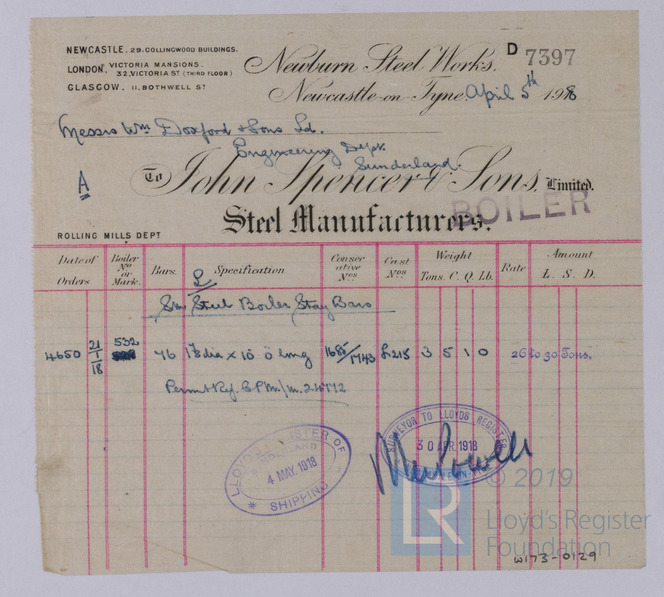 NEWCASTLE. 29. COLLINGWOOD BUILDINGS.
LONDON. VICTORIA MANSIONS.
32, VICTORIA ST (THIRD FLOOR)
GLASGOW. 11. BOTHWELL ST
D 7397
Newburn Steel Works.
Newcastle-on-Tyne April 5th 1918
Messrs Wm Doxford & Sons Ld.
Engineering Dept.
Sunderland.
A
To John Spencer & Sons, Limited.
BOILER
Steel Manufacturers.
ROLLING MILLS DEPT
Date of Orders Boiler No or Mark. Bars. Specification Conservative Nos Cast Nos Weight Tons. C. Q. Lb. Rate Amount L. S. D.
L
Sm Steel Boiler Stay Bars
4650 21/1/18 532 76 dia x 10' 0" long 1685/1743 L215 3 5 1 0 26 to 30 Tons.
LLOYD'S REGISTER OF SHIPPING
SUNDERLAND
4 MAY. 1918
SURVEYOR TO LLOYD'S REGISTER
30 APR. 1918
LR © 2019
Lloyd's Register
Foundation
W173-0129